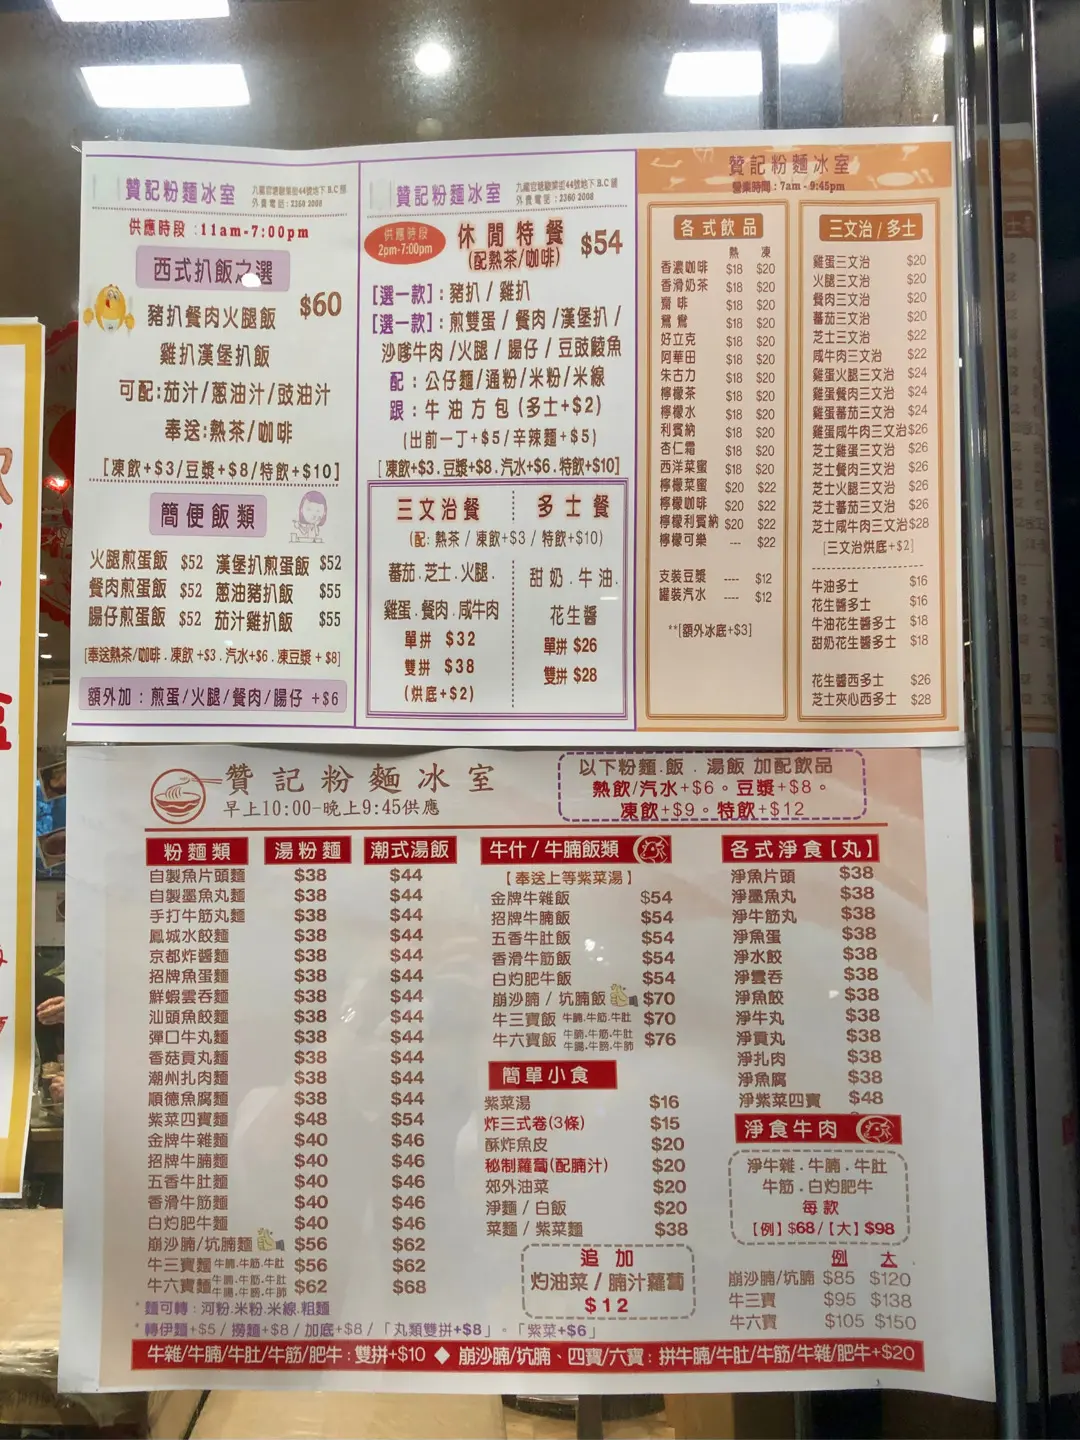 贊記粉麵冰室
九龍官塘駿業街44號地下B.C舖
外賣電話：2360 2008
供應時段 :11am-7:00pm
西式扒飯之選
豬扒餐肉火腿飯 $60
雞扒漢堡扒飯
可配:茄汁/蔥油汁/豉油汁
奉送:熱茶/咖啡
[凍飲+$3/豆漿+$8/特飲+$10]
簡便飯類
火腿煎蛋飯 $52 漢堡扒煎蛋飯 $52
餐肉煎蛋飯 $52 蔥油豬扒飯 $55
腸仔煎蛋飯 $52 茄汁雞扒飯 $55
[奉送熱茶/咖啡.凍飲+$3.汽水+$6.凍豆漿+$8]
額外加：煎蛋/火腿/餐肉/腸仔 +$6
贊記粉麵冰室
九龍官塘駿業街44號地下B.C舖
外賣電話：2360 2008
供應時段
2pm-7:00pm
休閒特餐 $54
(配熱茶/咖啡)
[選一款]：豬扒 / 雞扒
[選一款]：煎雙蛋 / 餐肉 /漢堡扒 /
沙嗲牛肉 /火腿 / 腸仔 / 豆豉鯪魚
配：公仔麵/通粉/米粉/米線
跟：牛油方包(多士+$2)
(出前一丁+$5/辛辣麵+$5)
[凍飲+$3.豆漿+$8.汽水+$6.特飲+$10]
三文治餐 多士餐
(配: 熱茶 / 凍飲+$3 / 特飲+$10)
蕃茄.芝士.火腿.
雞蛋.餐肉.咸牛肉
單拼 $32
雙拼 $38
(烘底+$2)
甜奶.牛油.
花生醬
單拼 $26
雙拼 $28
贊記粉麵冰室
營業時間：7am - 9:45pm
各式飲品
熱 凍
香濃咖啡 $18 $20
香滑奶茶 $18 $20
齋啡 $18 $20
鴛鴦 $18 $20
好立克 $18 $20
阿華田 $18 $20
朱古力 $18 $20
檸檬茶 $18 $20
檸檬水 $18 $20
利賓納 $18 $20
杏仁霜 $18 $20
西洋菜蜜 $18 $20
檸檬菜蜜 $20 $22
檸檬咖啡 $20 $22
檸檬利賓納 $20 $22
檸檬可樂 --- $22
支裝豆漿 ---- $12
罐裝汽水 ---- $12
**[額外冰底+$3]
三文治/多士
雞蛋三文治 $20
火腿三文治 $20
餐肉三文治 $20
蕃茄三文治 $20
芝士三文治 $22
咸牛肉三文治 $22
雞蛋火腿三文治 $24
雞蛋餐肉三文治 $24
雞蛋蕃茄三文治 $24
雞蛋咸牛肉三文治 $26
芝士雞蛋三文治 $26
芝士餐肉三文治 $26
芝士火腿三文治 $26
芝士蕃茄三文治 $26
芝士咸牛肉三文治 $28
[三文治烘底+$2]
牛油多士 $16
花生醬多士 $16
牛油花生醬多士 $18
甜奶花生醬多士 $18
花生醬西多士 $26
芝士夾心西多士 $28
贊記粉麵冰室
早上10:00-晚上9:45供應
以下粉麵.飯.湯飯 加配飲品
熱飲/汽水+$6。豆漿+$8。
凍飲+$9。特飲+$12
粉麵類 湯粉麵 潮式湯飯
自製魚片頭麵 $38 $44
自製墨魚丸麵 $38 $44
手打牛筋丸麵 $38 $44
鳳城水餃麵 $38 $44
京都炸醬麵 $38 $44
招牌魚蛋麵 $38 $44
鮮蝦雲吞麵 $38 $44
汕頭魚餃麵 $38 $44
彈口牛丸麵 $38 $44
香菇貢丸麵 $38 $44
潮州扎肉麵 $38 $44
順德魚腐麵 $38 $44
紫菜四寶麵 $48 $54
金牌牛雜麵 $40 $46
招牌牛腩麵 $40 $46
五香牛肚麵 $40 $46
香滑牛筋麵 $40 $46
白灼肥牛麵 $40 $46
崩沙腩/坑腩麵 $56 $62
牛三寶麵 牛腩.牛筋.牛肚 $56 $62
牛六寶麵 牛腩.牛筋.牛肚 牛腸.牛膀.牛肺 $62 $68
*麵可轉：河粉.米粉.米線.粗麵
*轉伊麵+$5 / 撈麵+$8 / 加底+$8 /「丸類雙拼+$8」.「紫菜+$6」
牛什/牛腩飯類
【奉送上等紫菜湯】
金牌牛雜飯 $54
招牌牛腩飯 $54
五香牛肚飯 $54
香滑牛筋飯 $54
白灼肥牛飯 $54
崩沙腩 / 坑腩飯 $70
牛三寶飯 牛腩.牛筋.牛肚 $70
牛六寶飯 牛腩.牛筋.牛肚 牛腸.牛膀.牛肺 $76
簡單小食
紫菜湯 $16
炸三式卷(3條) $15
酥炸魚皮 $20
秘制蘿蔔(配腩汁) $20
郊外油菜 $20
淨麵 / 白飯 $20
菜麵 / 紫菜麵 $38
追加
灼油菜 / 腩汁蘿蔔
$12
各式淨食【丸】
淨魚片頭 $38
淨墨魚丸 $38
淨牛筋丸 $38
淨魚蛋 $38
淨水餃 $38
淨雲吞 $38
淨魚餃 $38
淨牛丸 $38
淨貢丸 $38
淨扎肉 $38
淨魚腐 $38
淨紫菜四寶 $48
淨食牛肉
淨牛雜.牛腩.牛肚
牛筋.白灼肥牛
每款
【例】$68/【大】$98
例 大
崩沙腩/坑腩 $85 $120
牛三寶 $95 $138
牛六寶 $105 $150
牛雜/牛腩/牛肚/牛筋/肥牛：雙拼+$10 ◆ 崩沙腩/坑腩、四寶/六寶：拼牛腩/牛肚/牛筋/牛雜/肥牛+$20